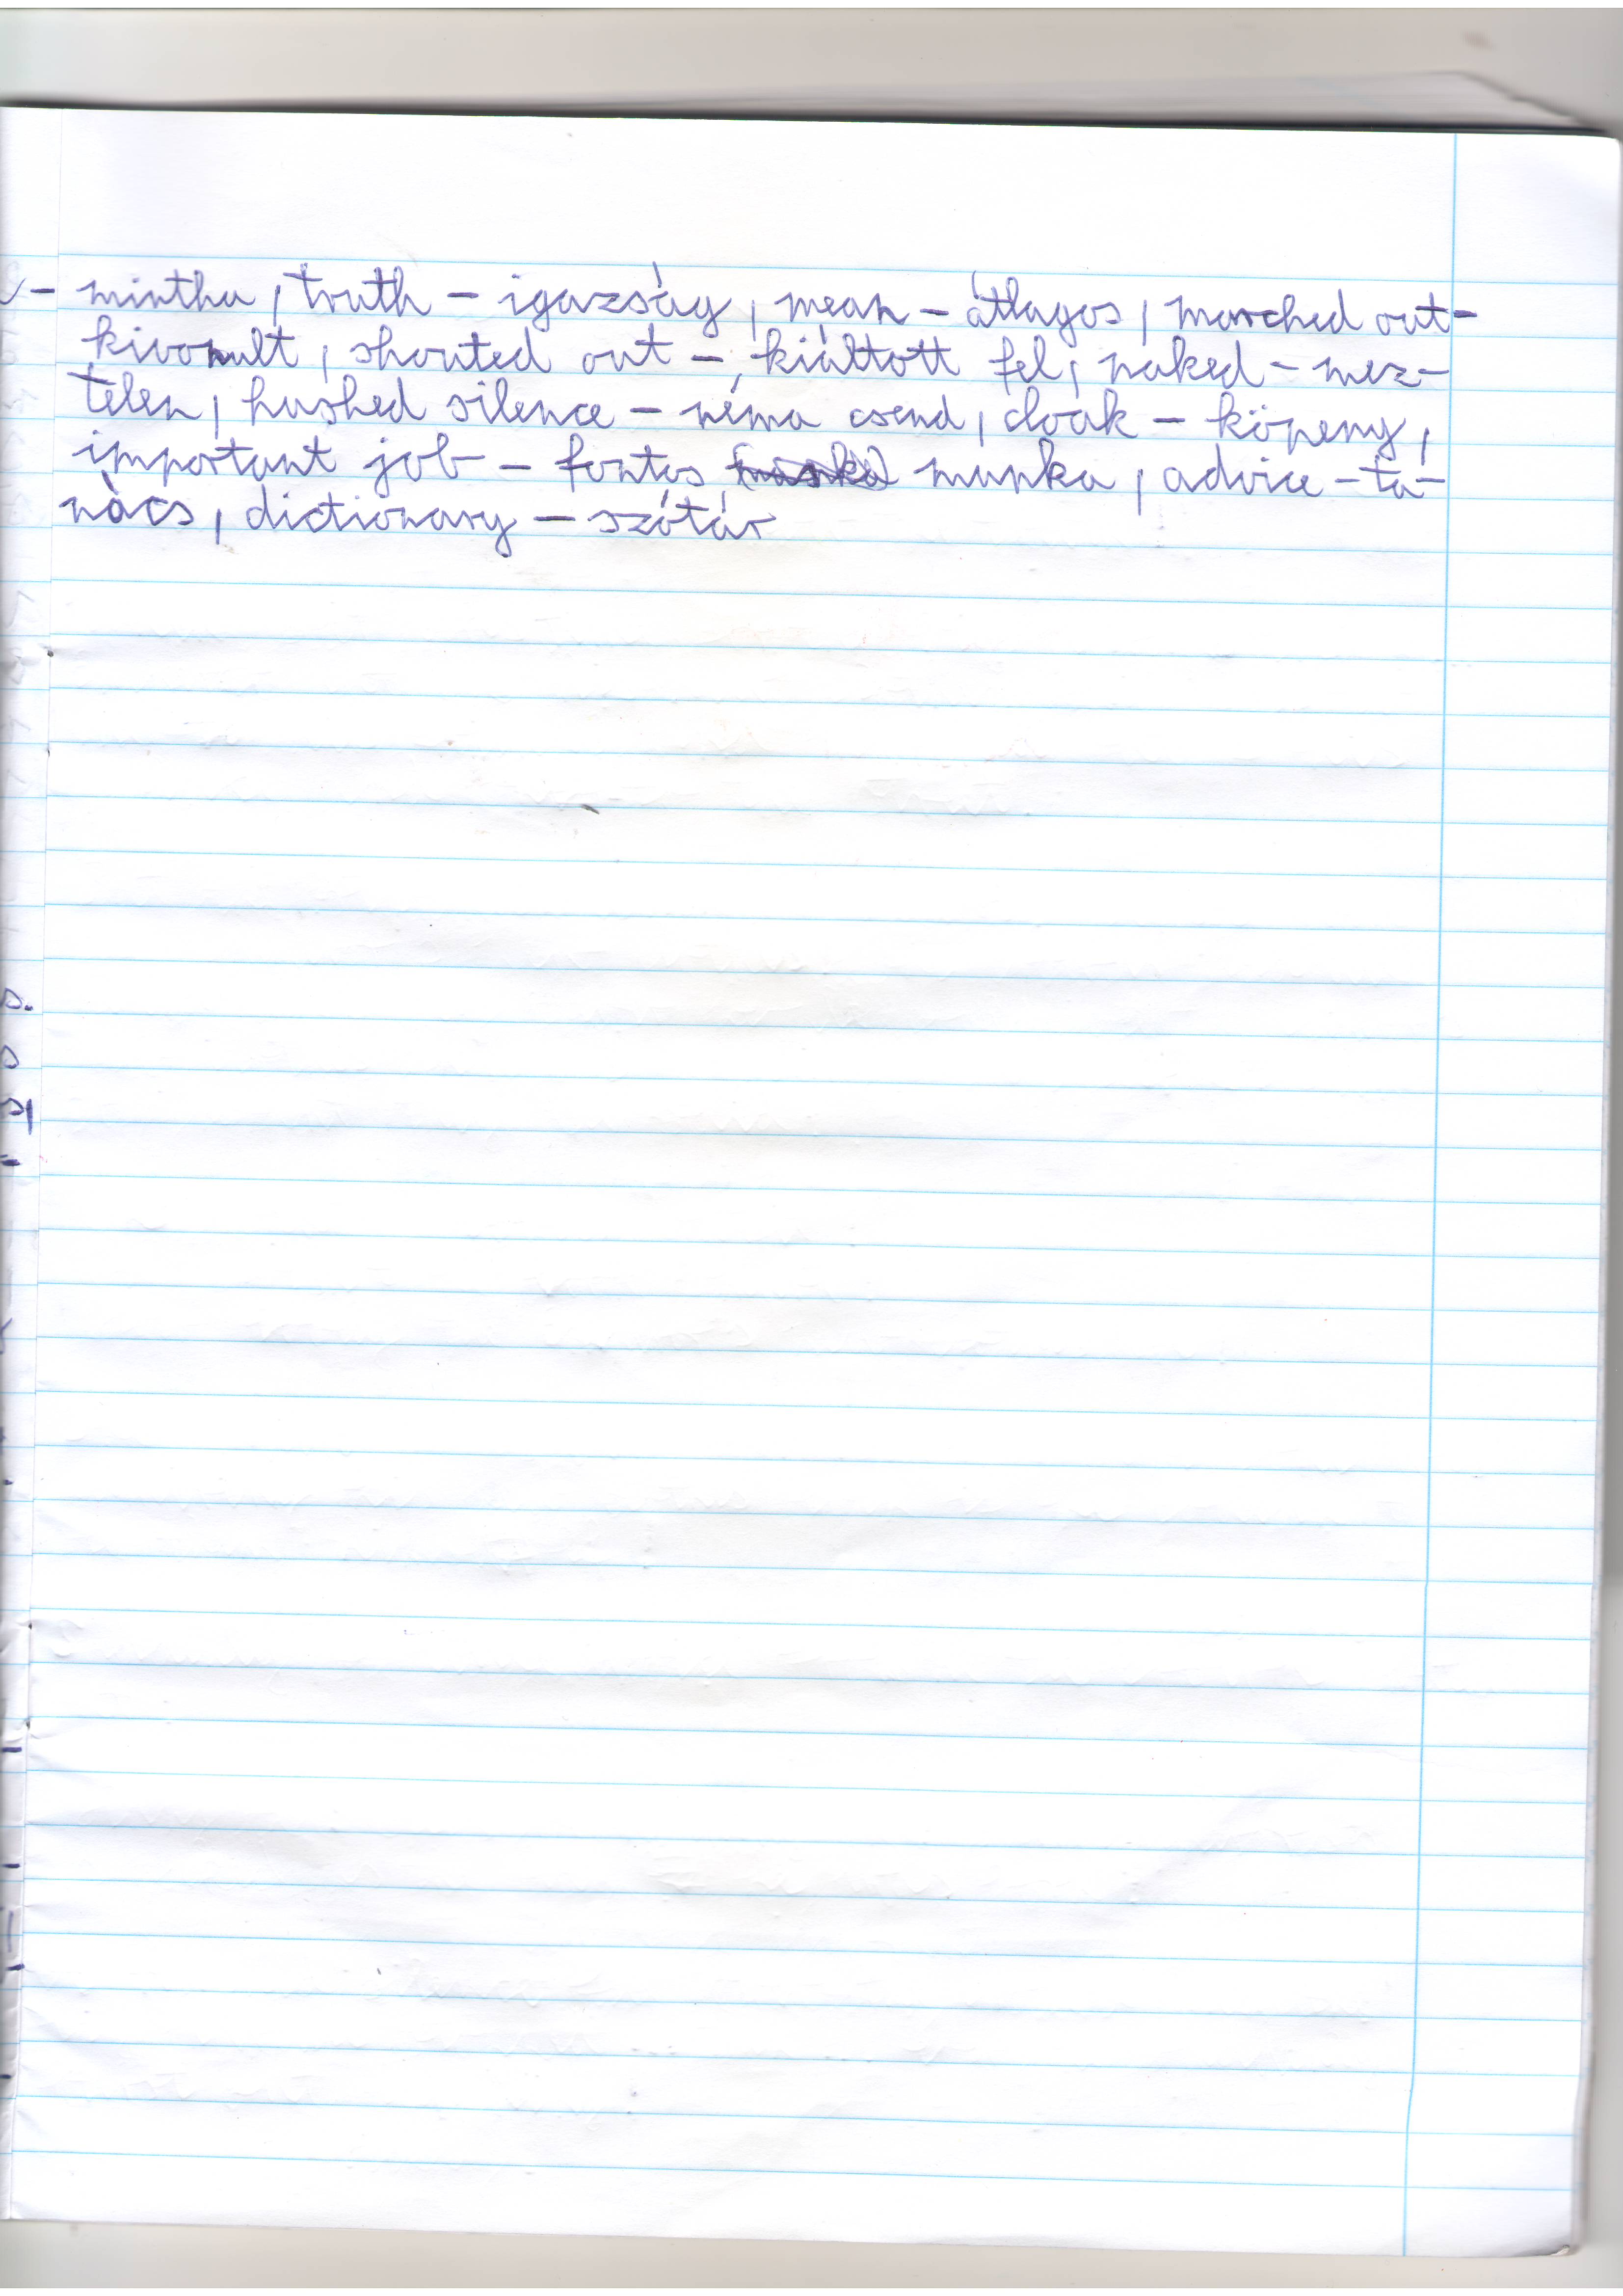 - mintha, truth - igazság, mean - átlagos, marched out-
kivonult, shouted out - kiáltott fel, naked - mez-
telen, hushed silence - néma csend, cloak - köpeny,
important job - fontos munka, advice - ta-
nács, dictionary - szótár